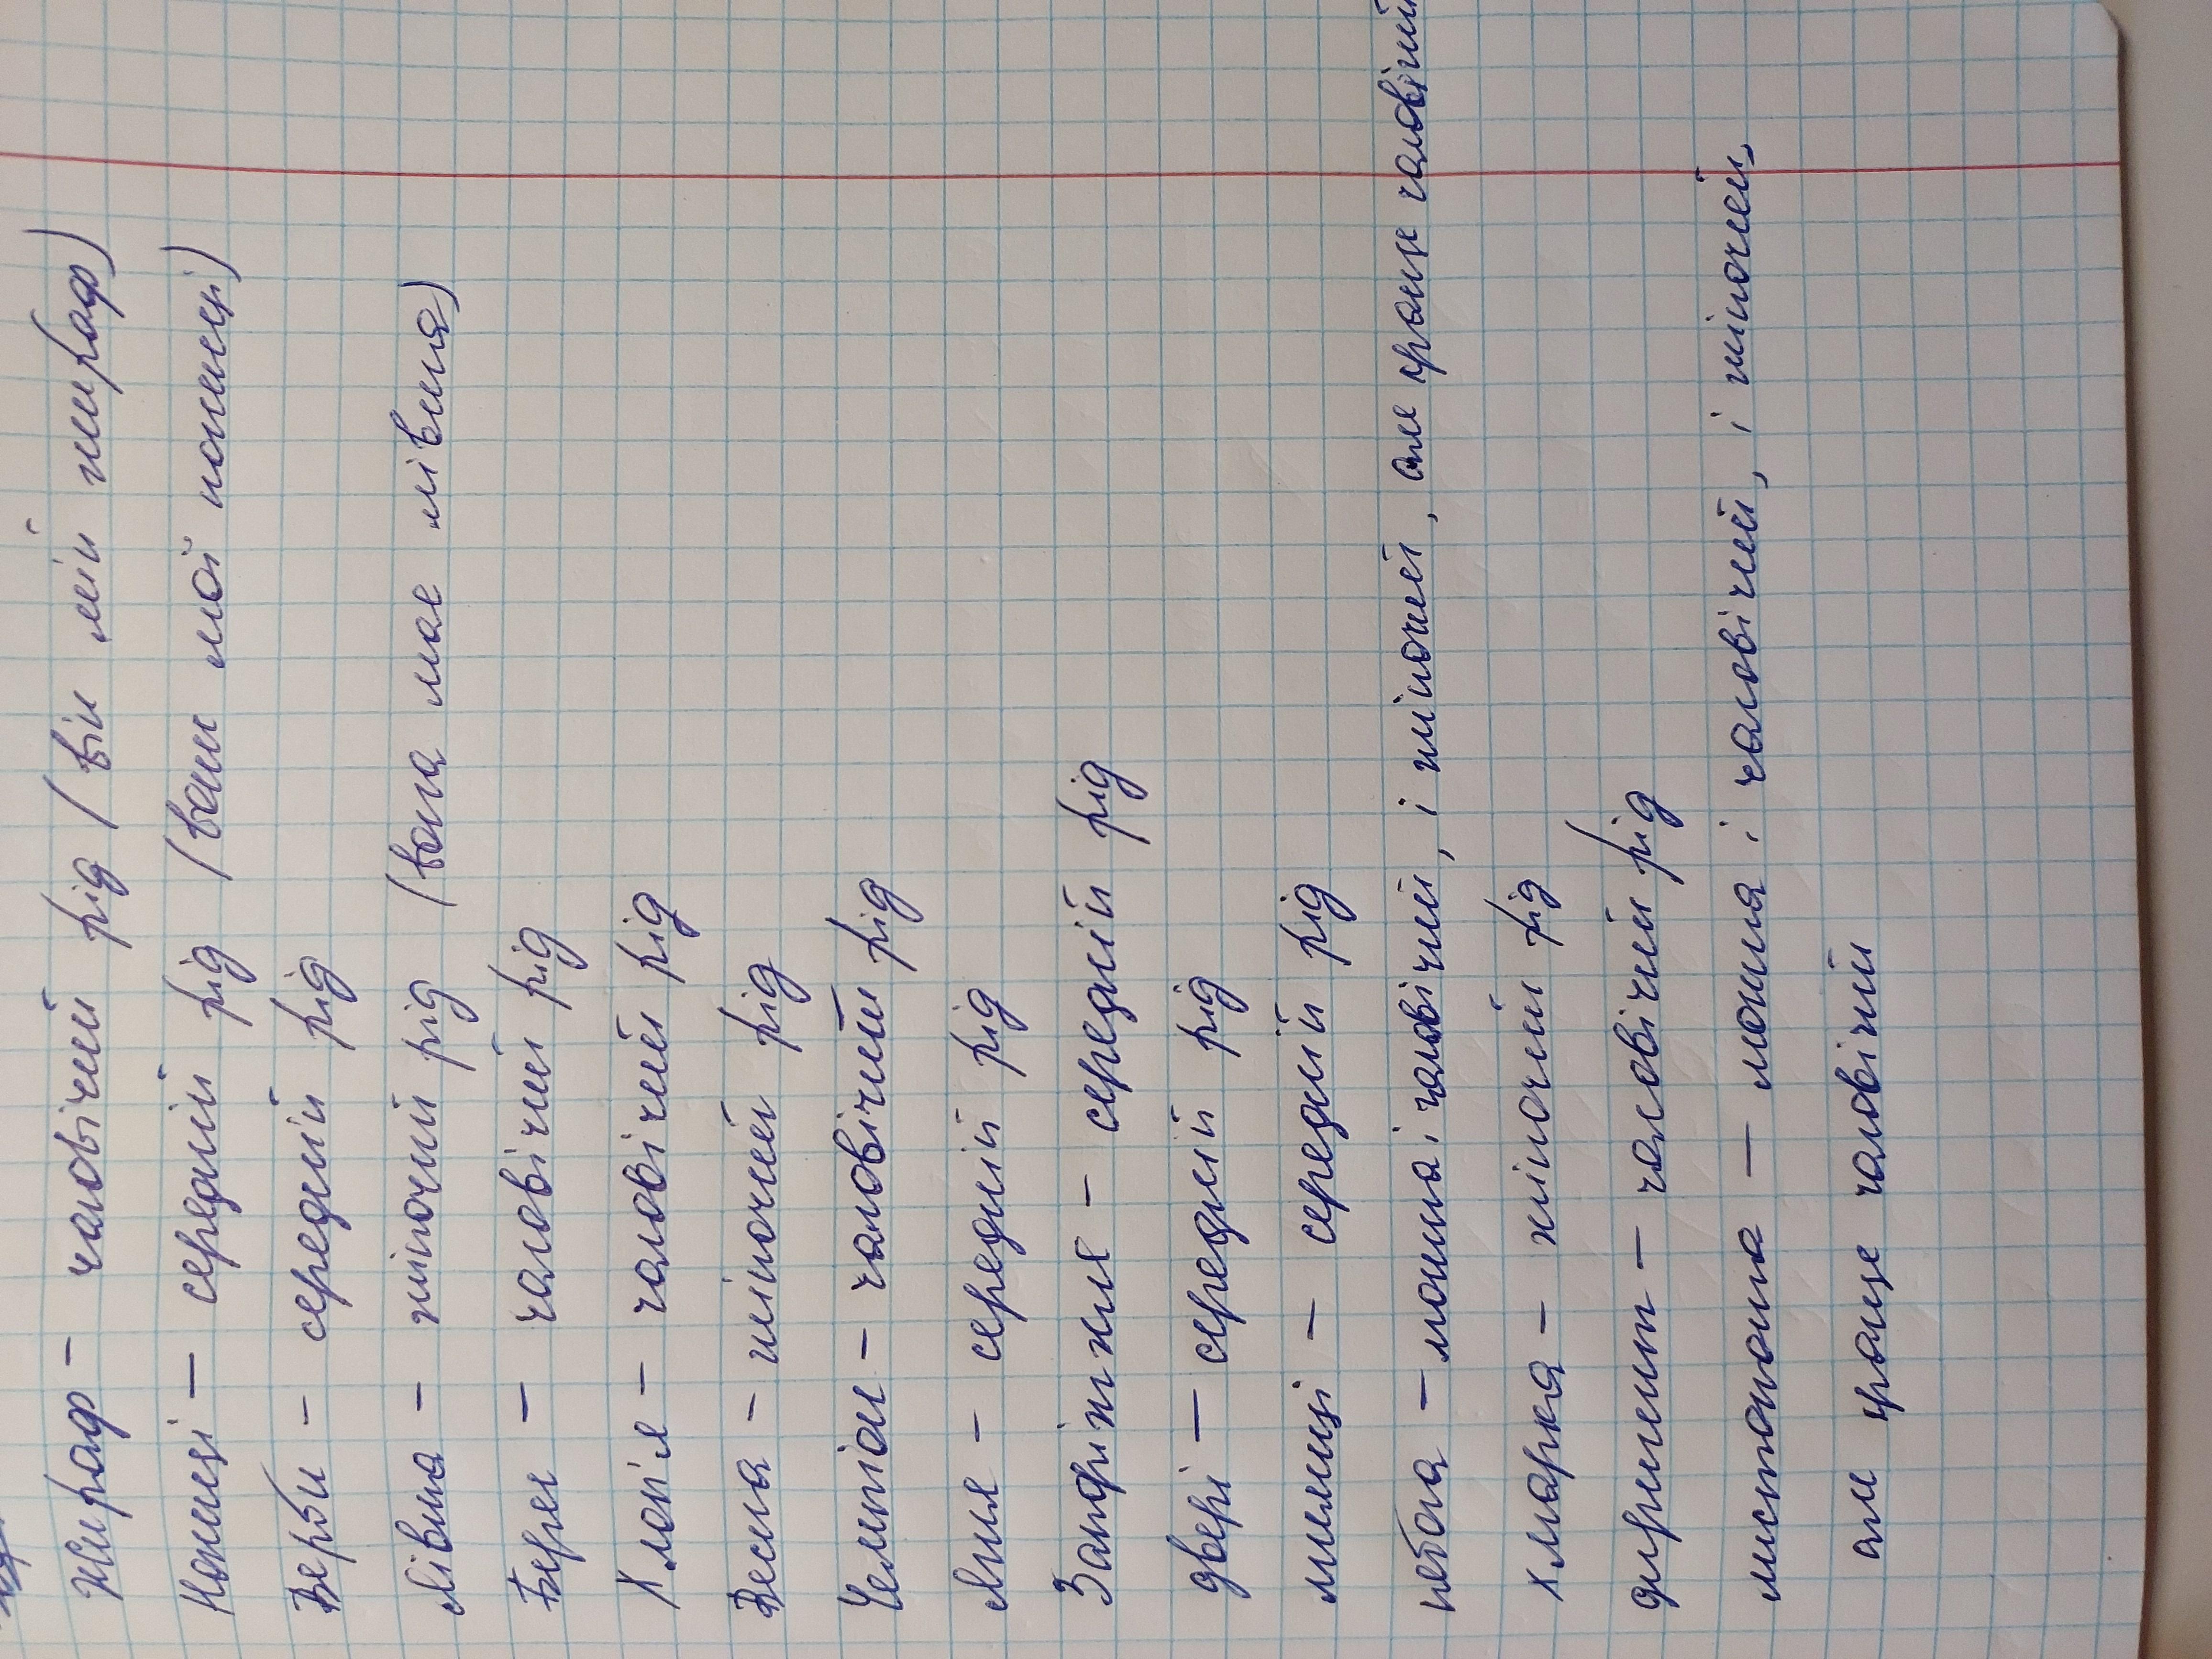 Жираф – чоловічий рід (він мій жираф)
Ножиці – середній рід (вони мої ножиці)
Верби – середній рід
Лівша – жіночий рід (вона моя лівша)
Берег – чоловічий рід
Хлоп'я – чоловічий рід
Весна – жіночий рід
Чемпіон – чоловічий рід
Лише – середній рід
Запоріжжя – середній рід
двері – середній рід
милиці – середній рід
небога – можна і чоловічий, і жіночий, але краще чоловічий
хмарка – жіночий рід
диригент – чоловічий рід
листоноша – можна і чоловічий, і жіночий,
але краще чоловічий